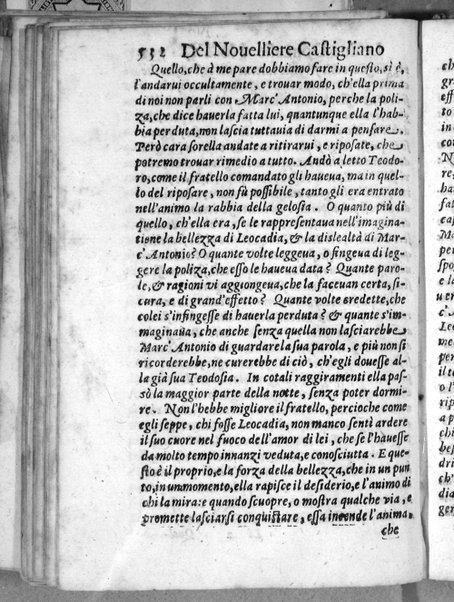 532 Del Novelliere Castigliano
Quello, che à me pare dobbiamo fare in questo, si è,
l'andarui occultamente, e trouar modo, ch'ella prima
di noi non parli con Marc' Antonio, perche la poli-
za, che dice hauerla fatta lui, quantunque ella l'hab-
bia perduta, non lascia tuttauia di darmi a pensare.
Però cara sorella andate a ritirarui, e riposate, che
potremo trouar rimedio a tutto. Andò a letto Teodo-
ro, come il fratello comandato gli haueua, ma in quel-
lo del riposare, non fù possibile, tanto gli era entrato
nell'animo la rabbia della gelosia. O quanto più di
quello, ch'ella era, se le rappresentaua nell'imagina-
tione la bellezza di Leocadia, & la dislealtà di Mar-
c' Antonio? O quante volte leggeua, o fingeua di leg-
gere la poliza, che esso le haueua data? Quante paro-
le, & ragioni vi aggiongeua, che la faceuan certa, si-
cura, e di grand'effetto? Quante volte credette, che
colei s'infingesse di hauerla perduta? & quante s'im-
maginaua, che anche senza quella non lasciarebbe
Marc' Antonio di guardare la sua parola, e più non si
ricorderebbe, ne curerebbe di ciò, ch'egli douesse al-
la già sua Teodosia. In cotali raggiramenti ella pas-
sò la maggior parte della notte, senza poter dormi-
re. Non l'hebbe migliore il fratello, percioche come
egli seppe, chi fosse Leocadia, non manco sentì ardere
il suo cuore nel fuoco dell'amor di lei, che se l'hauesse
da molto tempo innanzi veduta, e conosciutta. E que-
sto è il proprio, e la forza della bellezza, che in un pun
to, in un momento, ella rapisce il desiderio, e l'animo di
chi la mira: e quando scuopre, o mostra qualche via, e
promette lasciarsi conquistare, essa incende l'anima
che